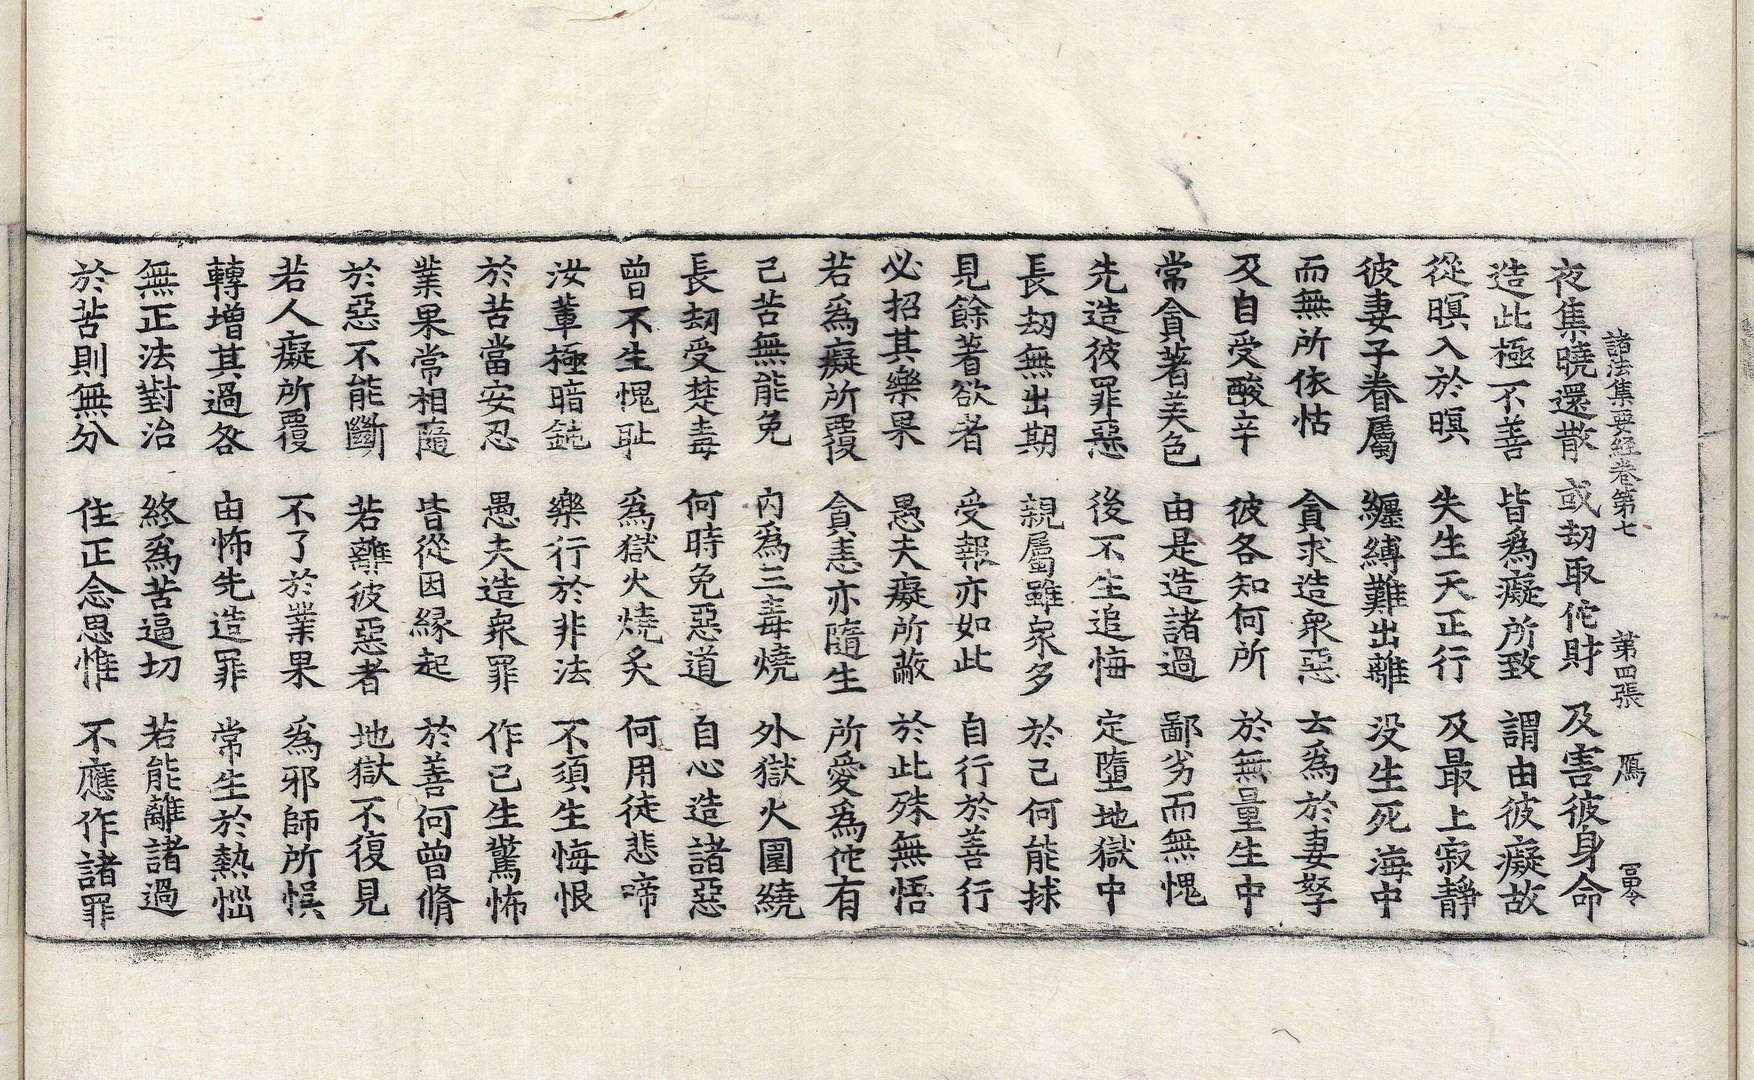 諸法集要経卷第七　第四張　鴈　冨令
夜集曉還散　或刧取佗財　及害彼身命
造此極不善　皆爲癡所致　謂由彼癡故
從暝入於暝　失生天正行　及最上寂靜
彼妻子眷屬　纏縛難出離　没生死海中
而無所依怙　貪求造衆惡　去為於妻孥
及自受酸辛　彼各知何所　於無量生中
常貪著美色　由是造諸過　鄙劣而無愧
先造彼罪惡　後不生追悔　定墮地獄中
長刧無出期　親屬雖衆多　於己何能捄
見餘著欲者　受報亦如此　自行於善行
必招其樂果　愚夫癡所蔽　於此殊無悟
若爲癡所覆　貪恚亦隨生　所愛爲佗有
己苦無能免　内爲三毒燒　外獄火圍繞
長刧受楚毒　何時免惡道　自心造諸惡
曾不生愧耻　爲獄火燒炙　何用徒悲啼
汝輩極暗鈍　樂行於非法　不須生悔恨
於苦當安忍　愚夫造衆罪　作已生驚怖
業果常相隨　皆從因縁起　於善何曾脩
於惡不能斷　若離彼惡者　地獄不復見
若人癡所覆　不了於業果　爲邪師所悞
轉增其過咎　由怖先造罪　常生於熱惱
無正法對治　終爲苦逼切　若能離諸過
於苦則無分　住正念思惟　不應作諸罪